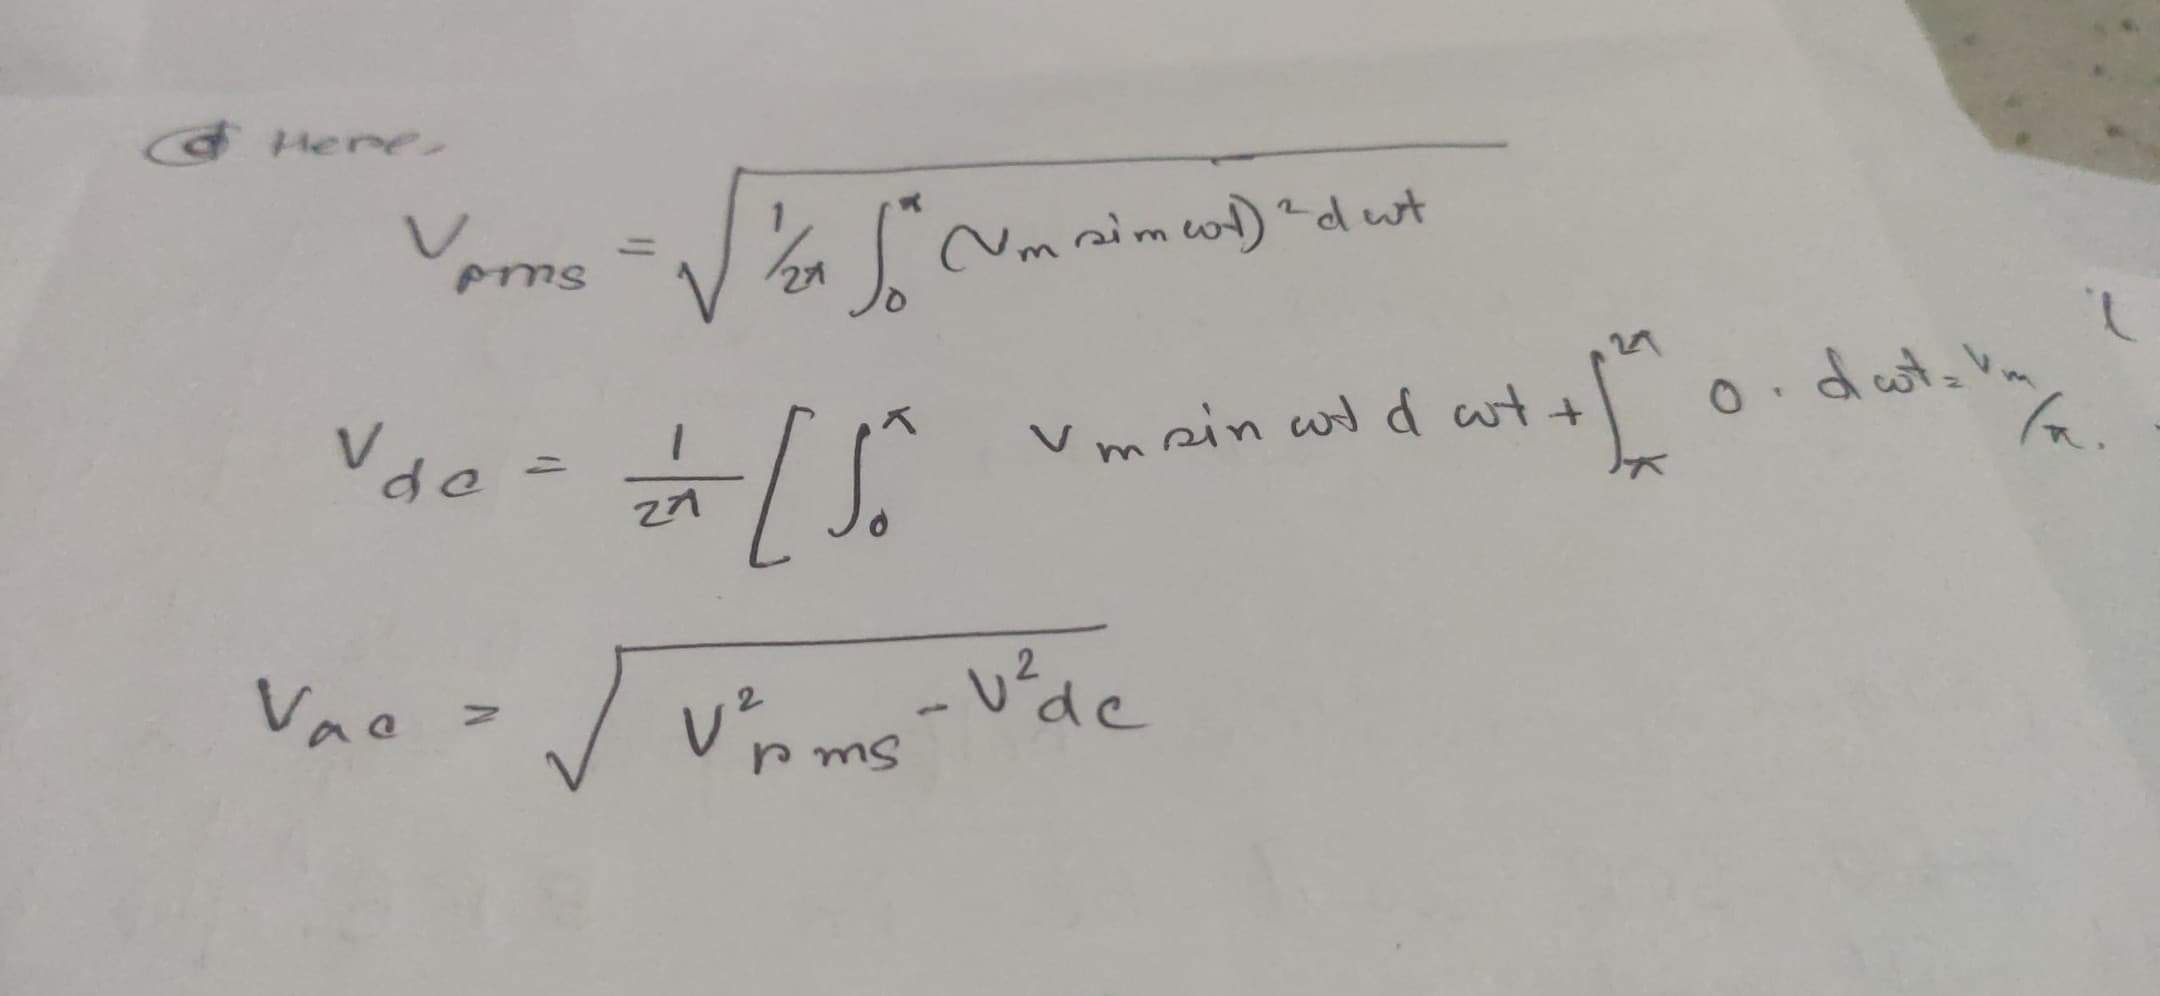 Here,
V rms = √ 1/2π ∫₀^π (Vm sin ωt)² dωt
Vdc = 1/2π [ ∫₀^π Vm sin ωt d ωt + ∫_π^2π 0 · dωt = Vm/π.
Vac = √ V² rms - V² dc